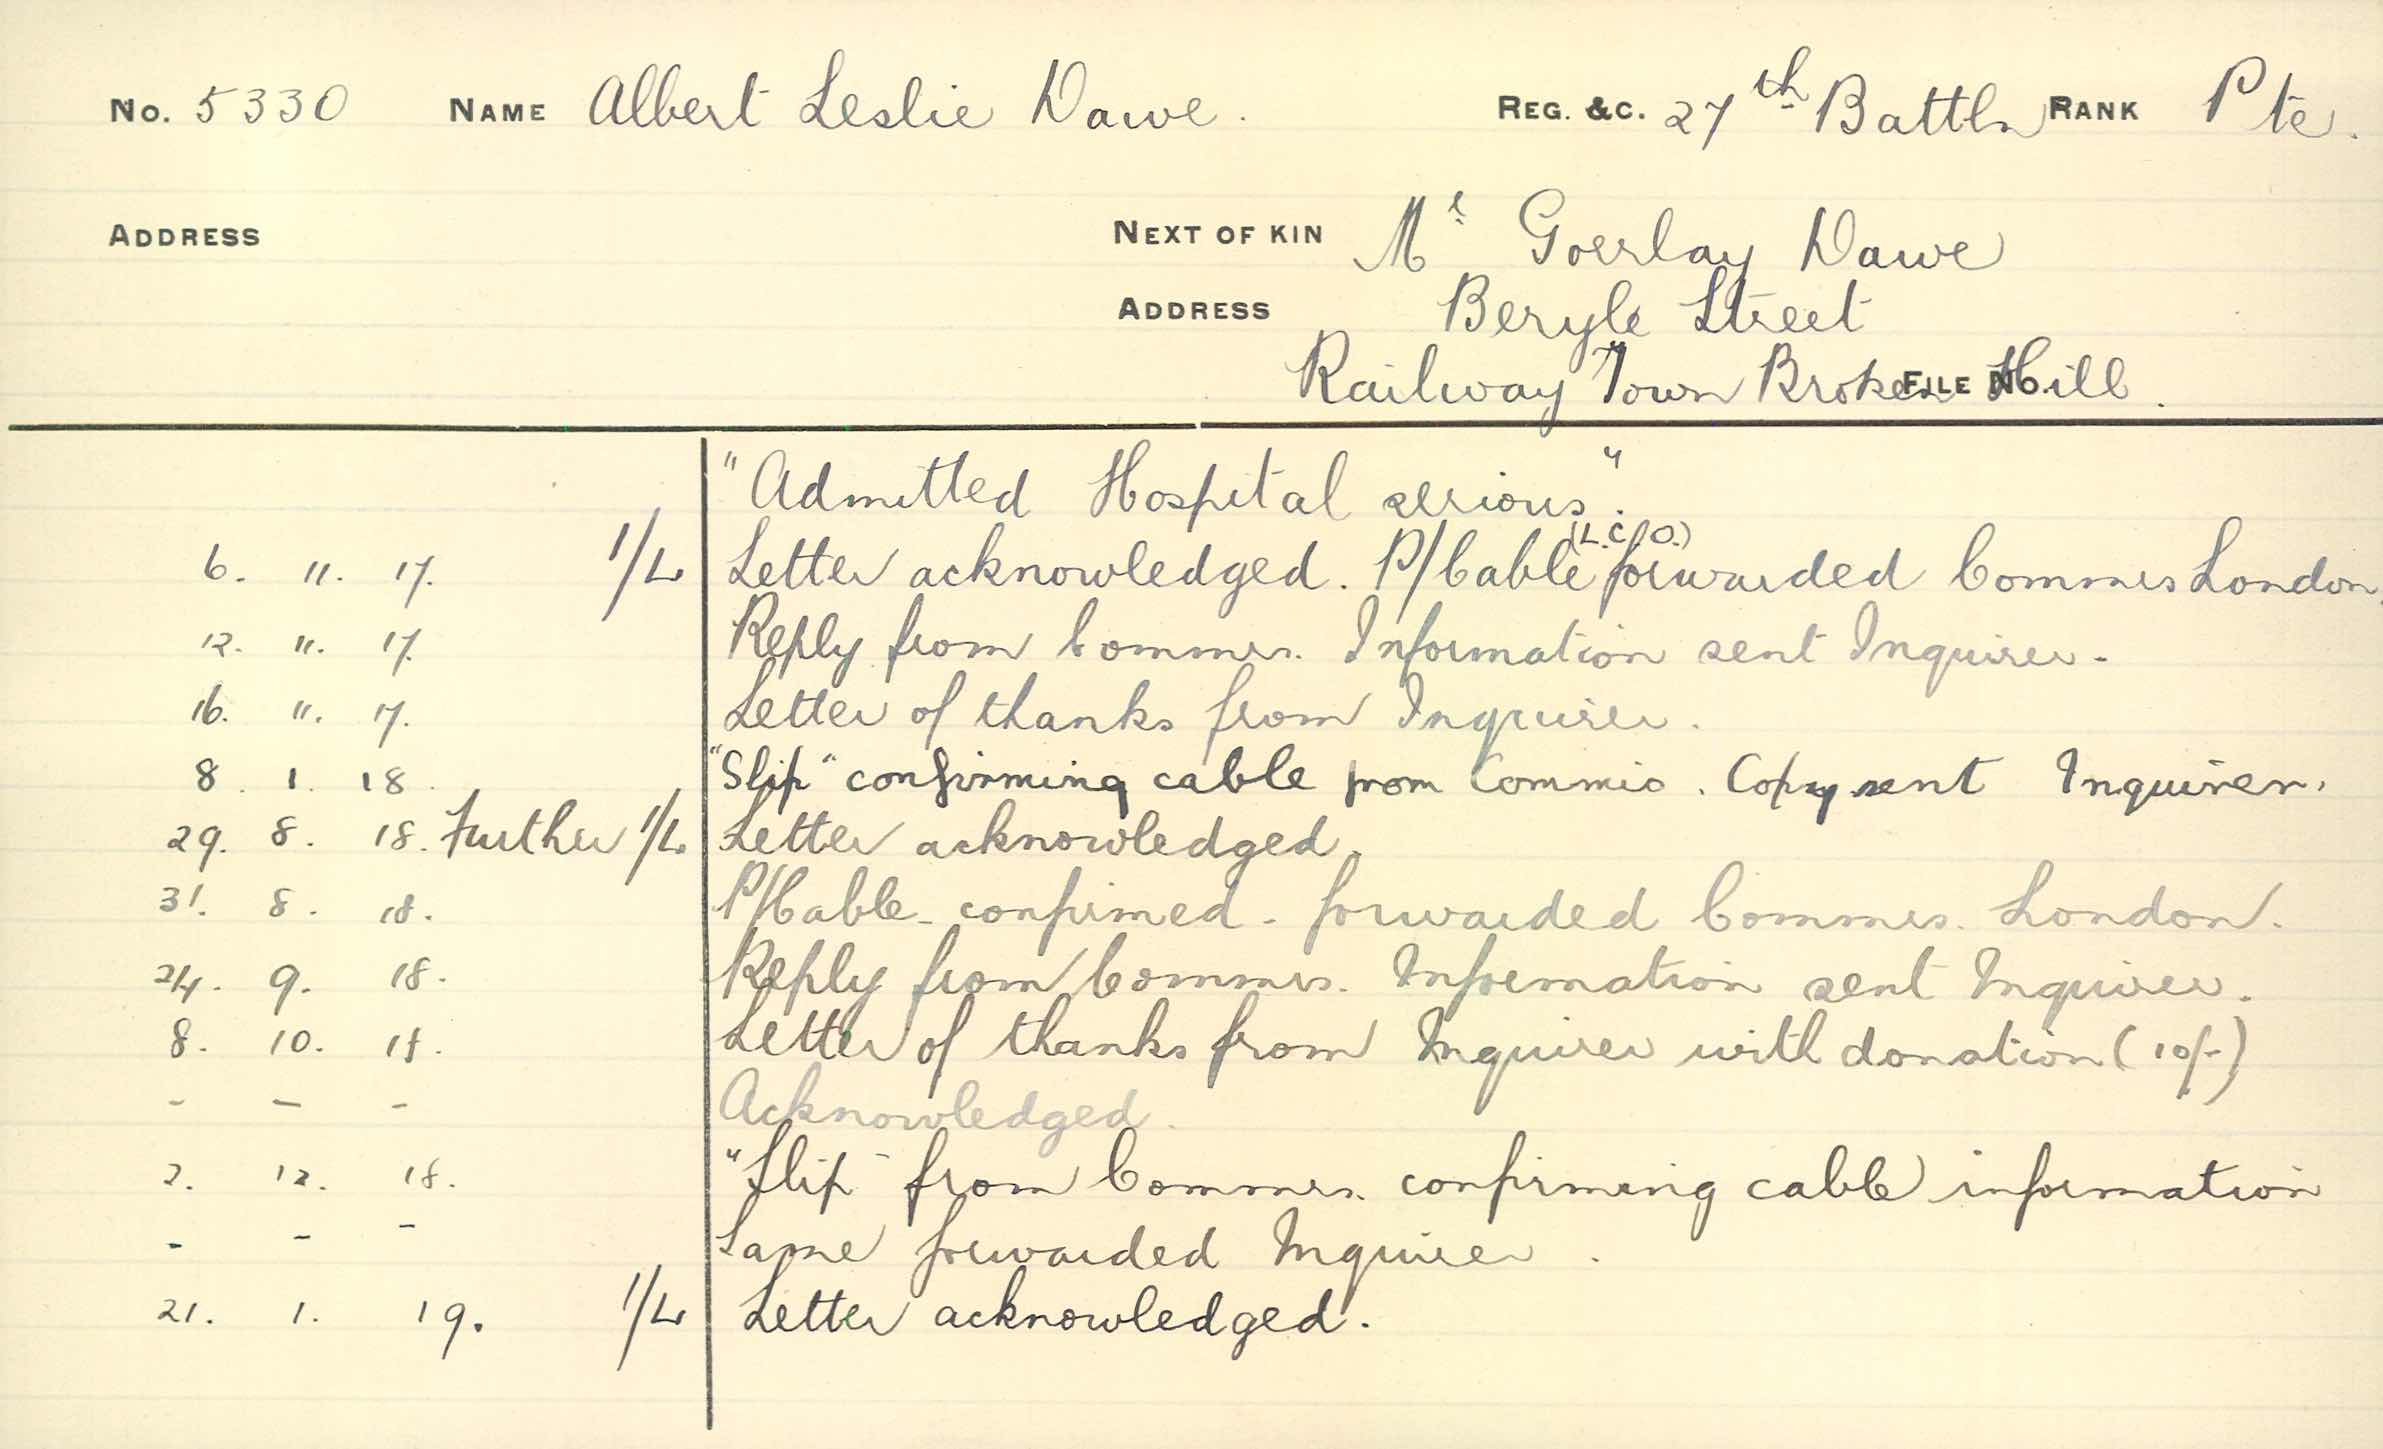 No. 5330 NAME Albert Leslie Dawe. REG. &C. 27th Battln RANK Pte.
ADDRESS NEXT OF KIN Mr Gourlay Dawe
ADDRESS Beryle Street
Railway Town Broken Hill.
FILE No.
"Admitted Hospital serious".
6. 11. 17. 1/L Letter acknowledged. P/Cable (L.C.O.) forwarded Commrs London.
12. 11. 17. Reply from Commrs. Information sent Inquirer.
16. 11. 17. Letter of thanks from Inquirer.
8. 1. 18. "Slip" confirming cable from Commis. Copy sent Inquirer.
29. 8. 18. Further 1/L. Letter acknowledged.
31. 8. 18. P/Cable - confirmed - forwarded Commrs. London.
24. 9. 18. Reply from Commrs. Information sent Inquirer.
8. 10. 18. Letter of thanks from Inquirer with donation (10/-)
- - - Acknowledged.
2. 12. 18. "Slip" from Commrs. confirming cable information
- - - Same forwarded Inquirer.
21. 1. 19. 1/L Letter acknowledged.